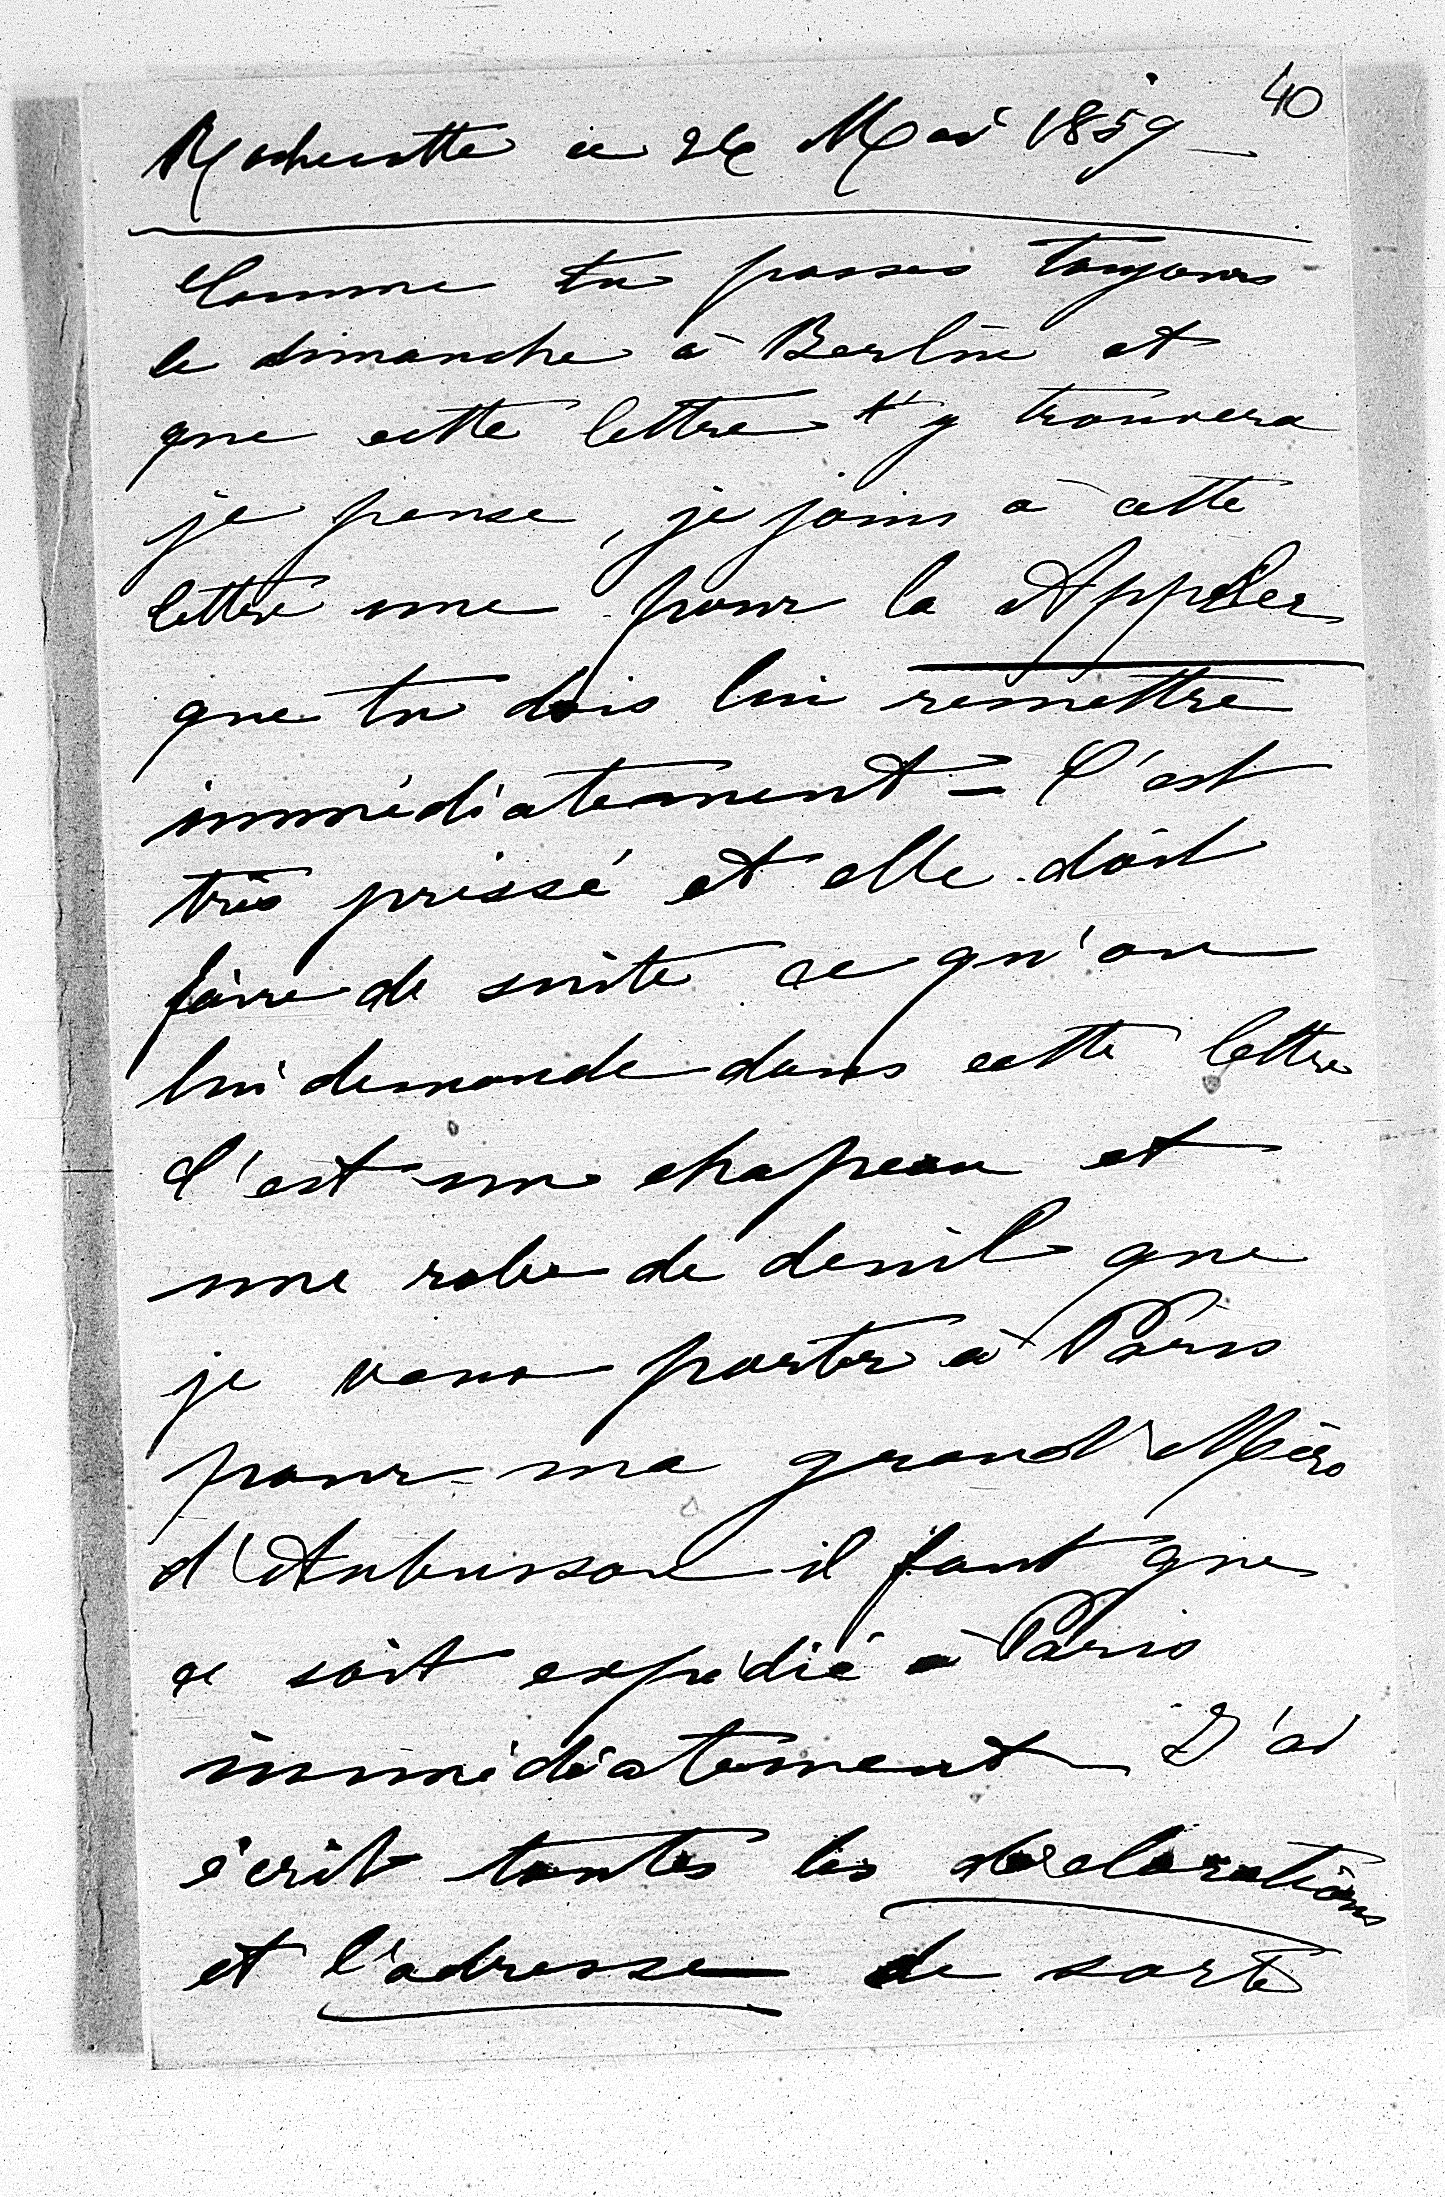 40
Rochecotte ce 26 Mai 1859 —
Comme tu passes toujours
le dimanche à Berlin et
que cette lettre t'y trouvera
je pense, je joins à cette
lettre une pour la
que tu dois lui remettre
immédiatement = C'est
très pressé et elle doit
faire de suite ce qu'on
lui demande dans cette lettre
C'est un chapeau et
une robe de deuil que
je veux porter à Paris
pour ma grand'Mère
d'Aubusson il faut que
ce soit expédié à Paris
immédiatement J'ai
écrit toutes les declarations
et l'adresse de sorte